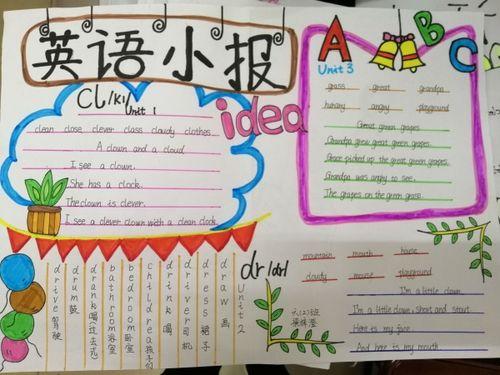 英语小报
CL/kl/
Unit 1
clean close clever class cloudy clothes
A clown and a cloud
I see a clown.
She has a clock.
The clown is clever.
I see a clever clown with a clean clock.
idea
A B C
Unit 3
grass great grandpa
hungry angry playground
Great green grapes
Grandpa grew great green grapes.
Grace picked up the great green grapes.
Grandpa was angry to see.
The grapes on the green grass.
drive 驾驶
drum 鼓
drank 喝(过去式)
bathroom 浴室
bedroom 卧室
children 孩子们
drink 喝
driver 司机
dress 裙子
draw 画
Unit 2
dr/dr/
mountain mouth house
cloudy mouse playground
I'm a little clown
I'm a little clown, short and stout.
Here is my face
And here is my mouth
六(2)班